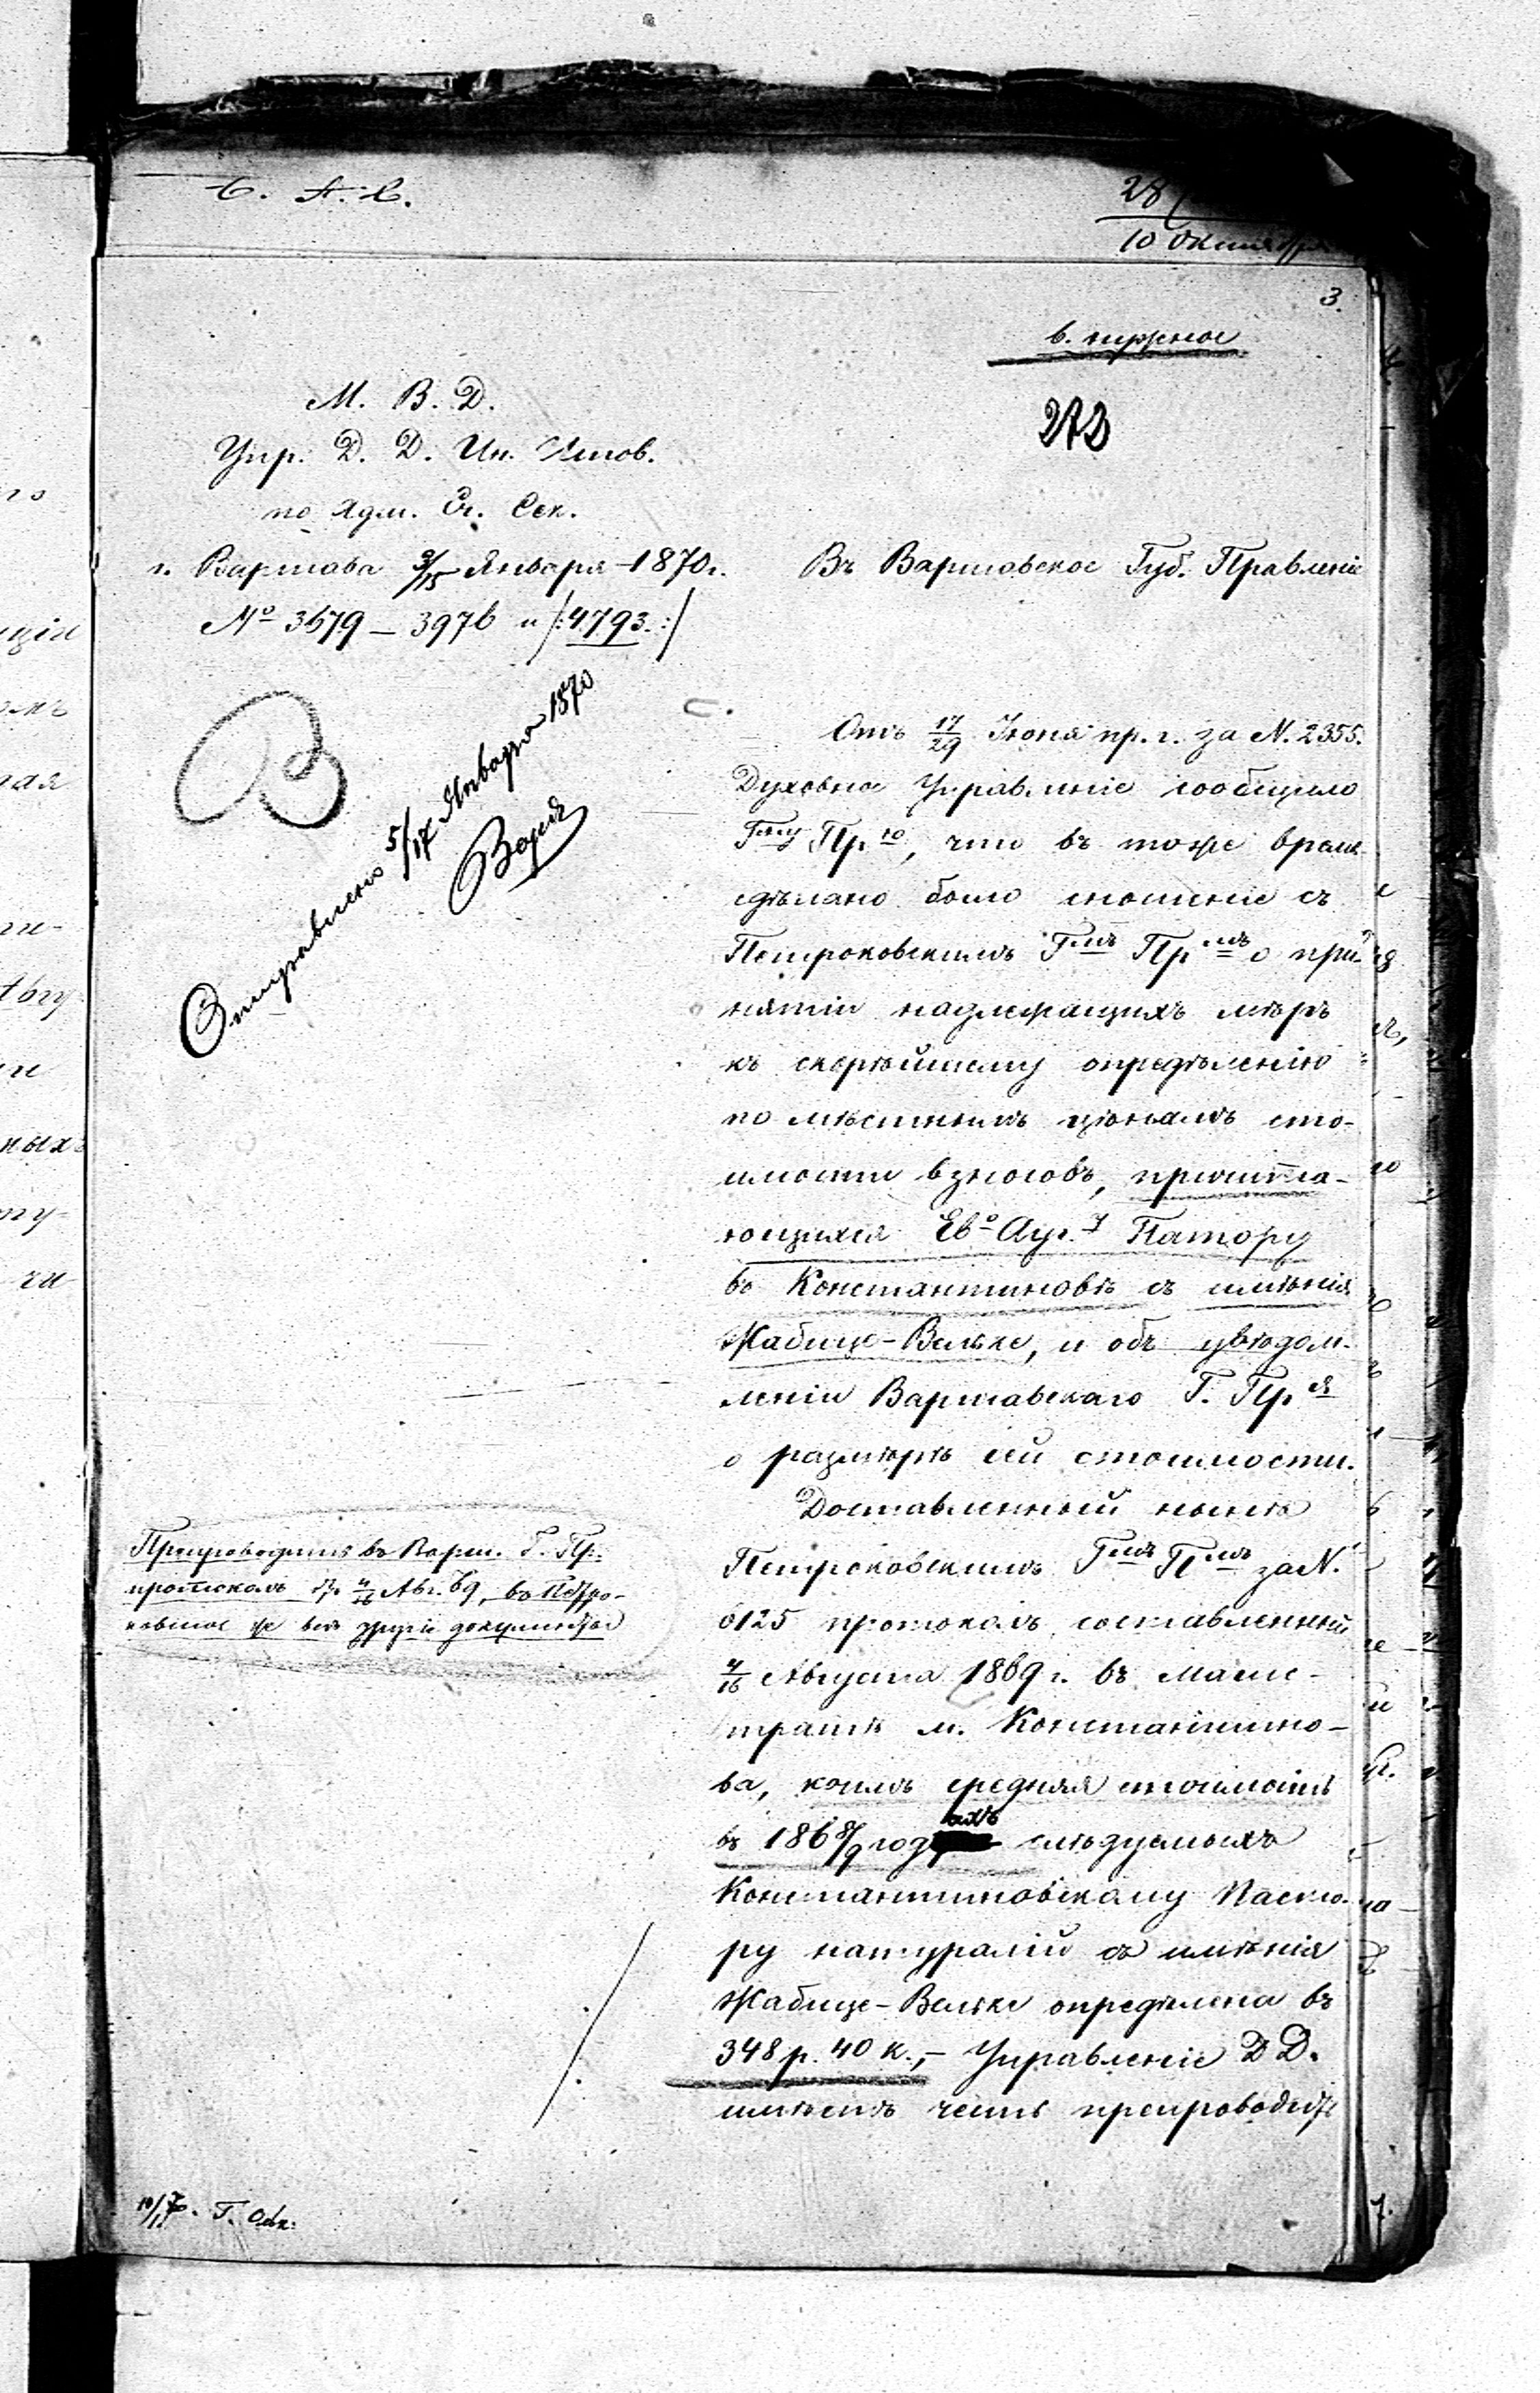 С. А. С.
28
10 Октября
3.
в. нужное
272
М. В. Д.
Упр. Д. Д. Ин. Испов.
по Адм. Сч. Сек.
г. Варшава 3/15 Января 1870 г.
№ 3679 – 3976 и /:4793.:/
Въ Варшавское Губ. Правленіе
Отправлено 5/17 Января 1870
Отъ 17/29 Іюня пр. г. за N. 2355.
Духовное Управленіе сообщило
Г му Пр ю, что въ тоже время
сдѣлано было сношеніе съ
Петроковскимъ Г мъ Пр мъ о при-
нятіи надлежащихъ мѣръ
къ скорѣйшему опредѣленію
по мѣстнымъ цѣнамъ сто-
имости взносовъ, причита-
ющихся Ев о Ауг. у Пастору
въ Константиновѣ съ имѣнія
Жабице-Вельке, и объ увѣдом-
леніи Варшавскаго Г. Пр я
о размѣрѣ сей стоимости.
Доставленный нынѣ
Петроковскимъ Г мъ П мъ за N.
6125 протоколъ, составленный
4/16 Августа 1869 г. въ Магис-
тратѣ м. Константино-
ва, коимъ средняя стоимость
въ 186 8/9 годахъ слѣдуемыхъ
Константиновскому Пасто-
ру натуралій съ имѣнія
Жабице-Вельке опредѣлена въ
348 р. 40 к., – Управленіе Д Д.
имѣетъ честь препроводить
Препроводить въ Варш. Г. Пр.
протоколъ отъ 4/16 Авг. 69, въ Петро-
ковское же всѣ другіе документы